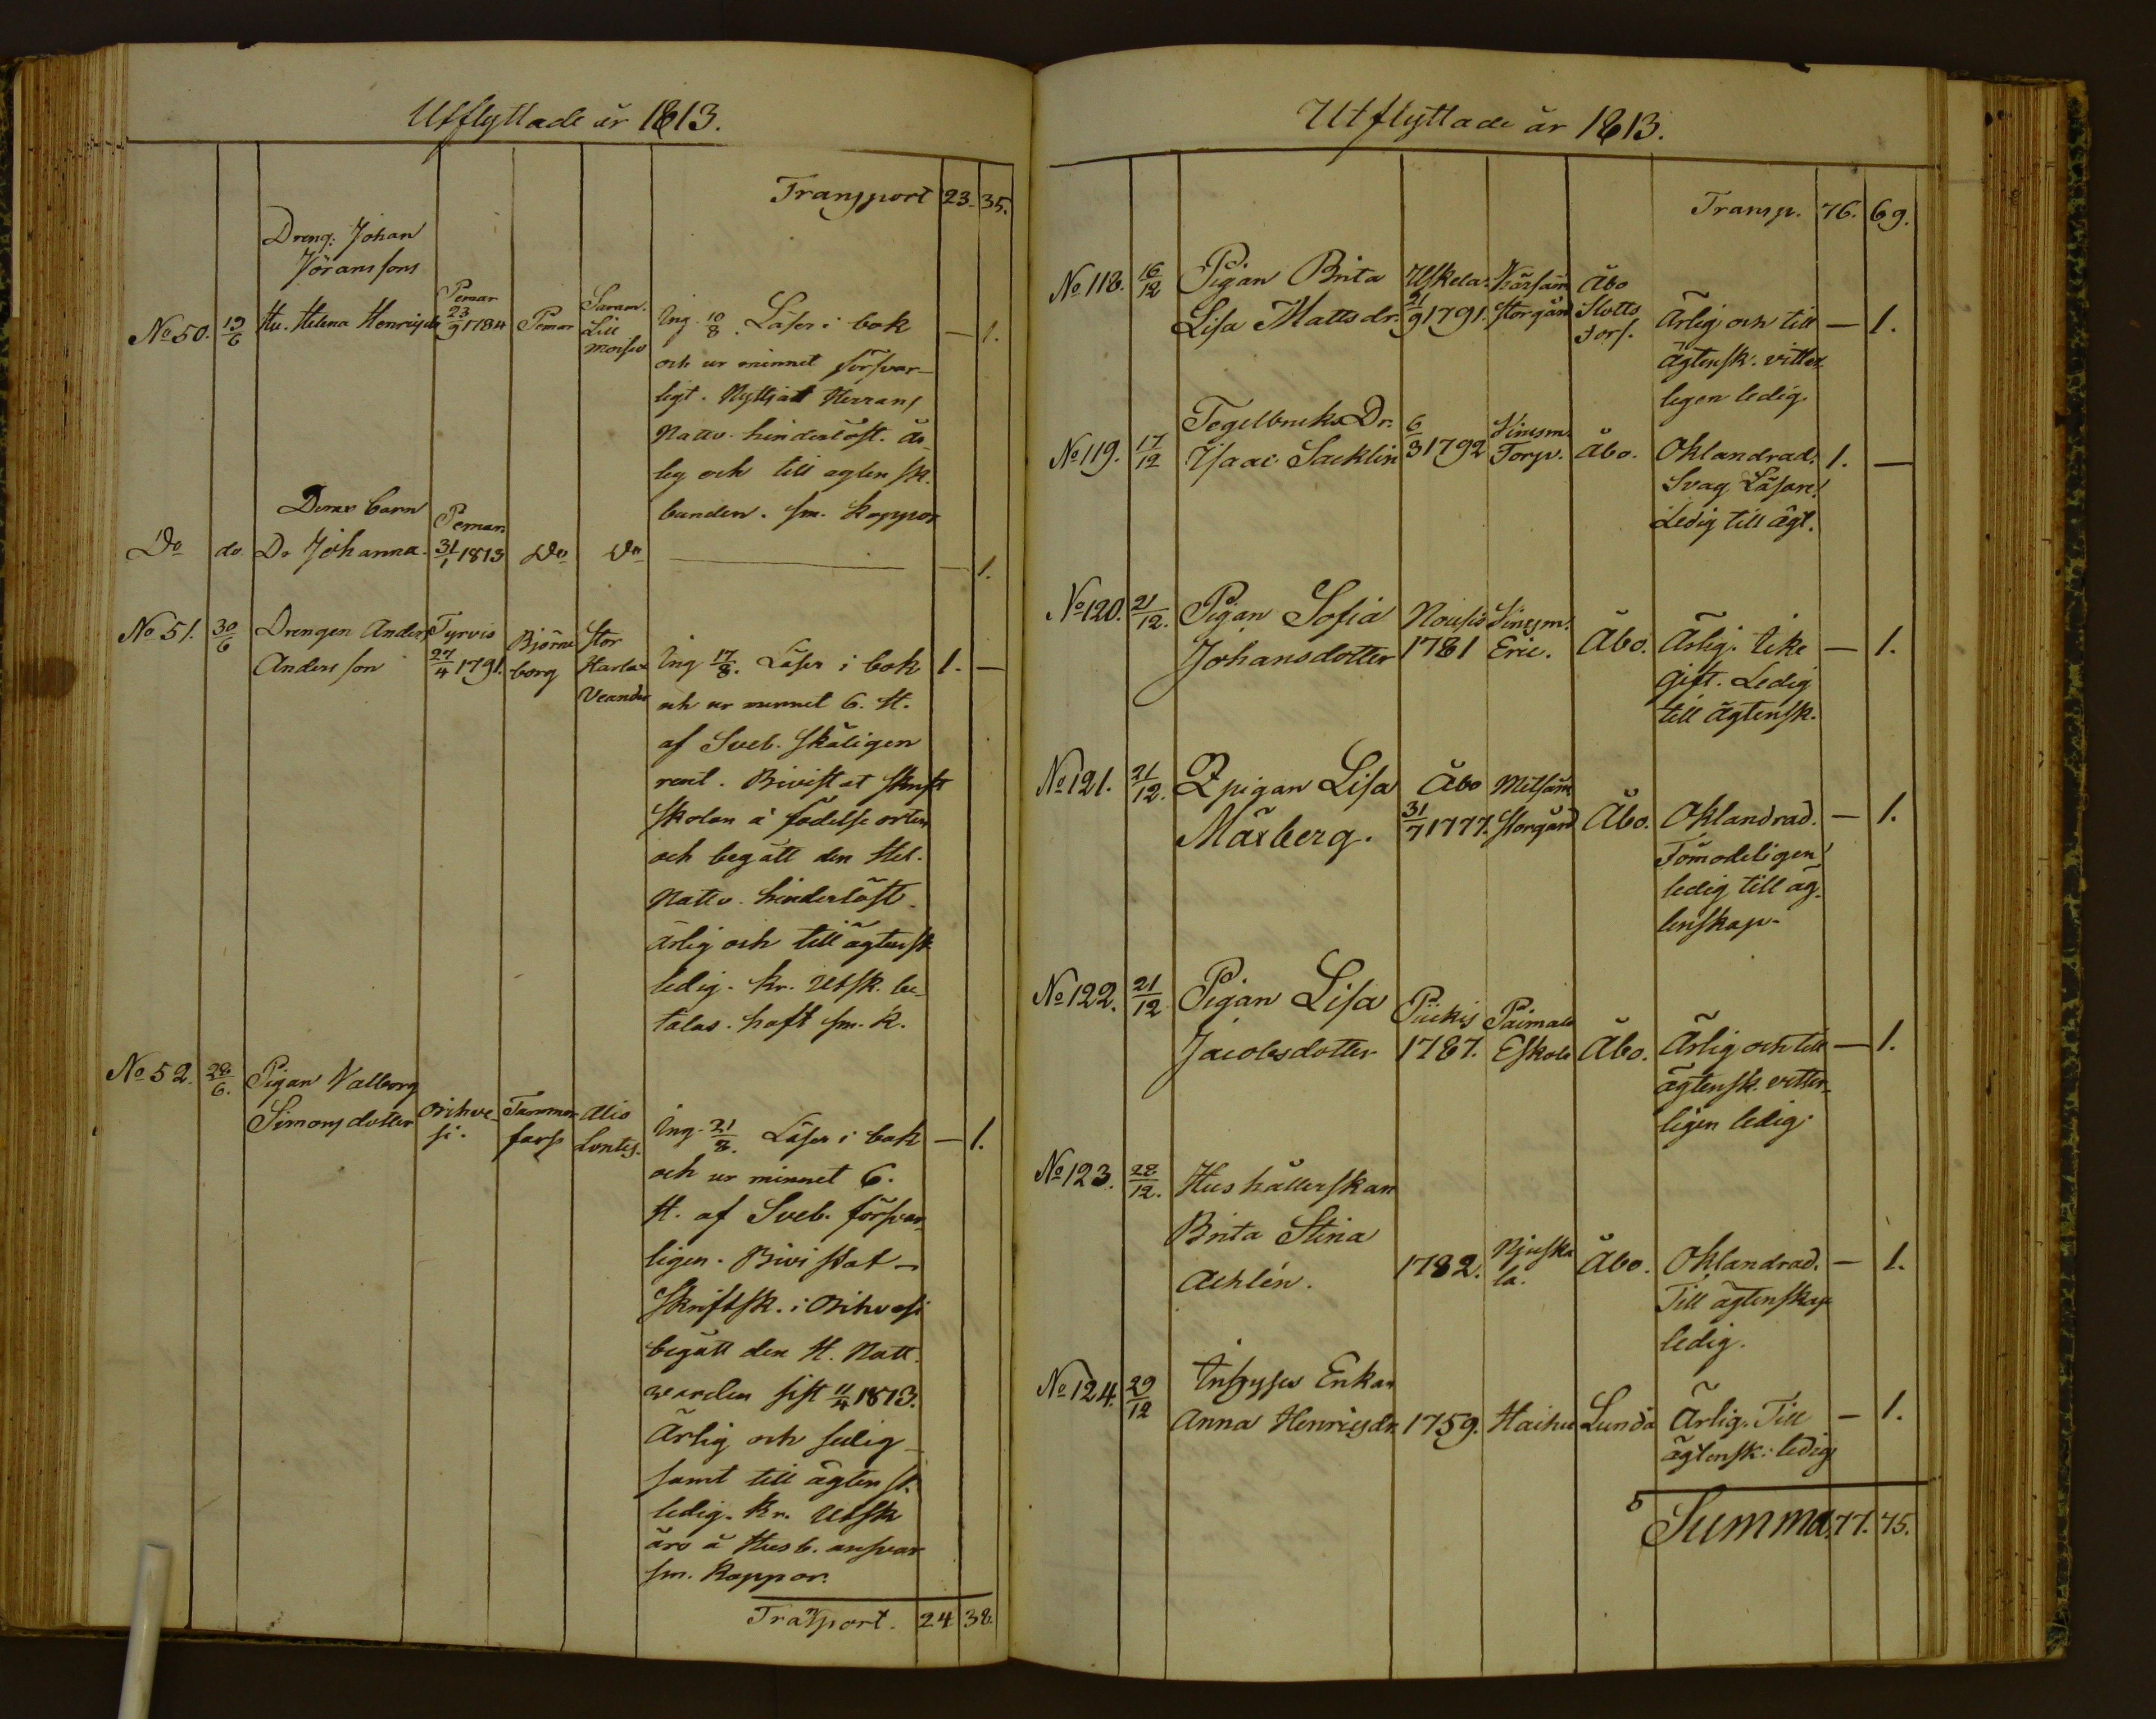 Utflyttade år 1813.
Transport 23. 35.
Dreng: Johan
Jöranssons
No 50. 19/6 Hu. Helena Henrigsdr Pemar 23/9 1784 Pemar Lill Ing. 10/8. Läser i bok — 1.
och ur minnet försvar-
ligt. Nyttjat Herrans
Nattv. hinderlöst. är-
lig och till egtensk.
bunden. sm. koppor
Deras barn
Do do Dr Johanna. Pemar 31/1 1813 Do Do — 1.
No 51. 30/6 Drengen Anders Tyrvis Björne Stor
Andersson 27/4 1791. borg Ing 17/8. Läser i bok 1. —
och ur minnet 6. H.
af Sveb. skäligen
rent. Bivistat skrift
skolan å födelse orten
och begått den Hel.
Nattv. hinderlöst.
ärlig och till ägtensk.
ledig. Kr. Utsk. be-
talas. haft sm. k.
No 52. 28/6. Pigan Valborg
Simonsdotter Orihve- Tammer- Alis
si. fors Lontis. Ing. 21/8. Läser i bok — 1.
och ur minnet 6.
H. af Sveb. försvar-
ligen. Bivistat
Skriftsk. i Orihvesi
begått den H. Natt.
warden sist 11/4 1813.
Ärlig och sedig
samt till ägtensk.
ledig. Kr. Utsk
äro å Husb. ansvar
sm. Koppor.
Transport. 24 38.
Utflyttade år 1813.
Transp. 76. 69.
No 118. 16/12 Pigan Brita Uskela Åbo
Lisa Mattsdr. 21/9 1791. Storgård Slotts Ärlig och till — 1.
förs. ägtensk. vitter
ligen ledig.
Tegelbruks Dr.
No 119. 17/12 Isaac Sacklin 6/3 1792 Torp. Åbo. Oklandrad. 1. —
Svag Läsare!
Ledig till ägt.
No 120. 21/12. Pigan Sofia Nousis
Johansdotter 1781 Eric. Åbo. Ärlig. Icke — 1.
gift. Ledig
till ägtensk.
No 121. 21/12. Qpigan Lisa Åbo
Märberg. 31/7 1777. Storgård Åbo. Oklandrad. — 1.
Förmodeligen
ledig till äg-
tenskap.
No 122. 21/12 Pigan Lisa Piikis Paimala
Jacobsdotter 1787. Eskola Åbo. Ärlig och till — 1.
ägtensk. vitter-
ligen ledig.
No 123. 28/12. Hushållerskan
Brita Stina Njuska
Achlén. 1782. la. Åbo. Oklandrad. — 1.
Till ägtenskap
ledig.
No 124. 29/12 Inhyses Enkan
Anna Henrigsdr. 1759. Haihu Lundo Ärlig. Till — 1.
ägtensk. ledig
Summa 77. 75.